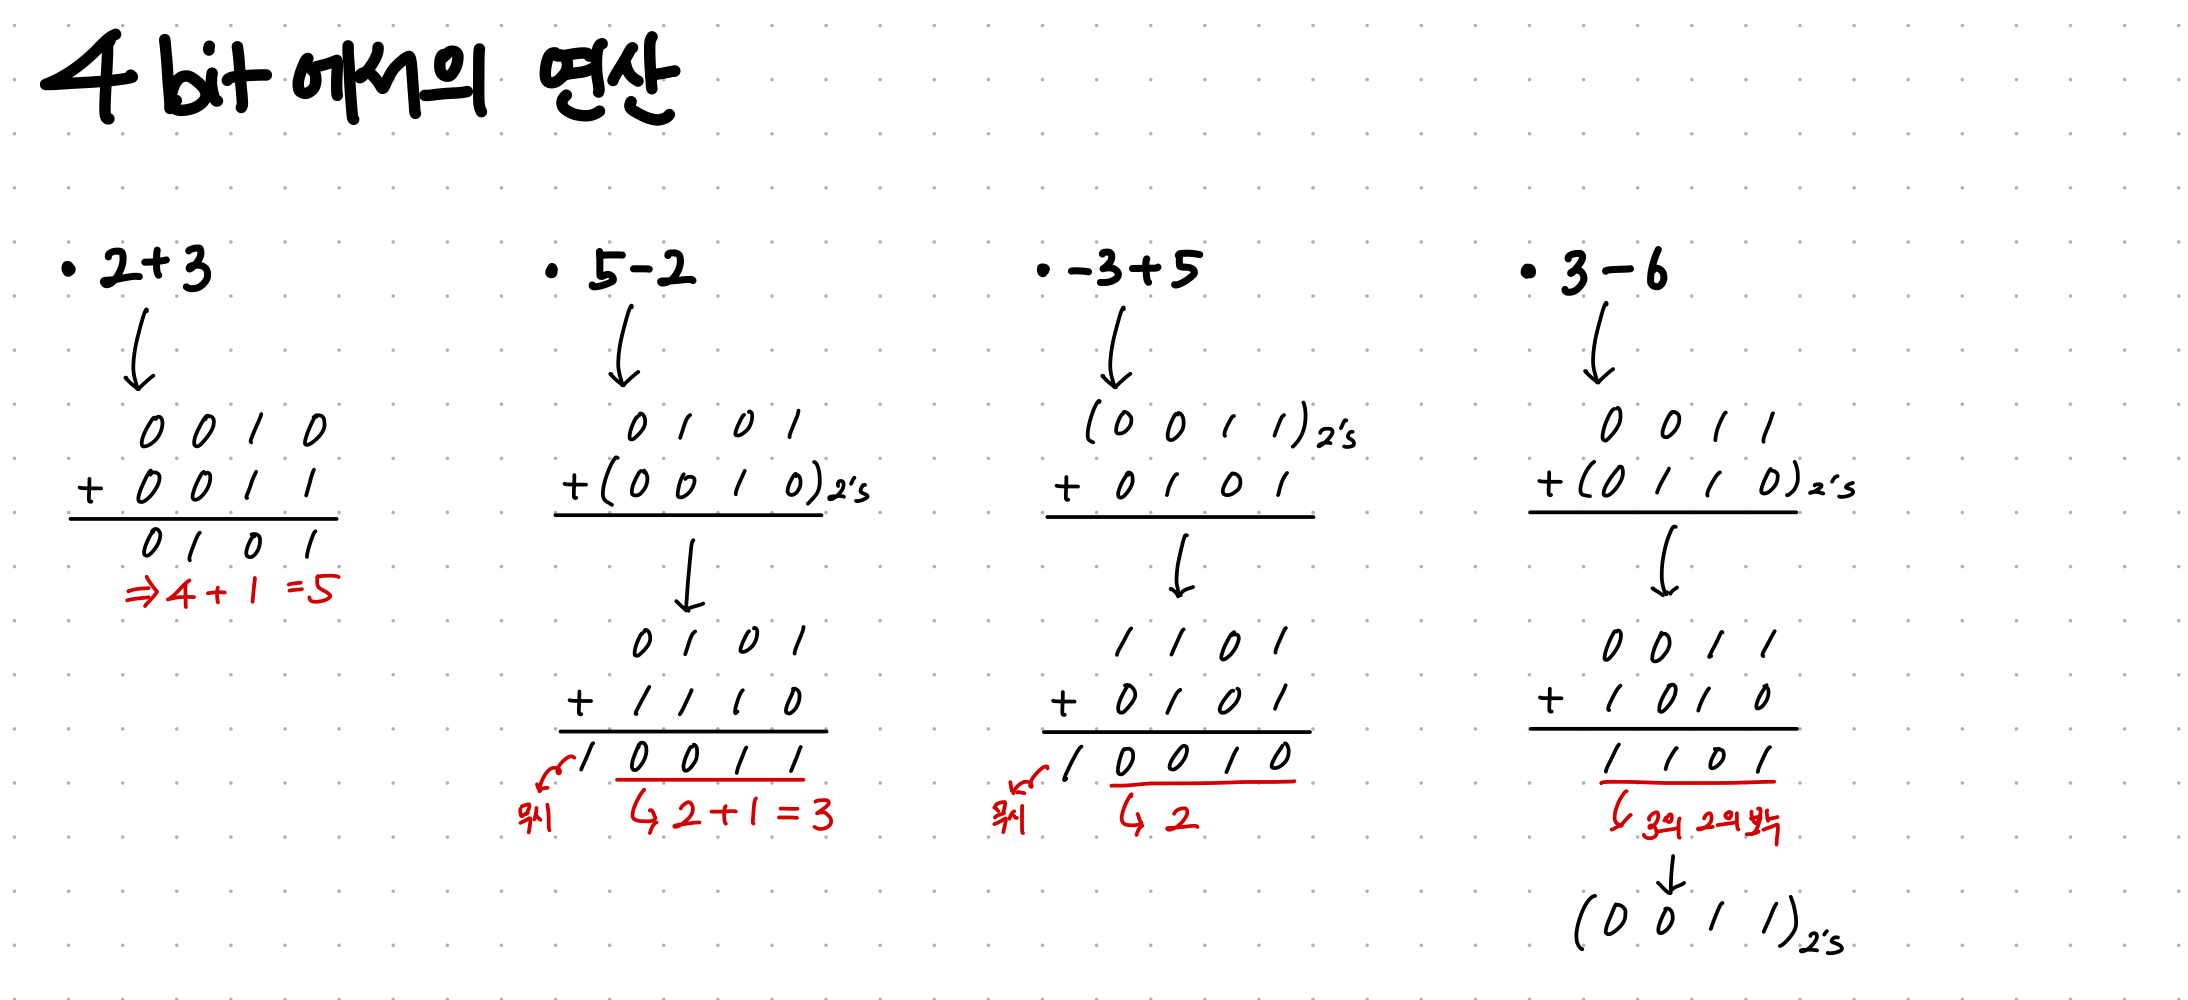 4 bit 에서의 연산
• 2+3
0 0 1 0
+ 0 0 1 1
0 1 0 1
⇒ 4 + 1 = 5
• 5-2
0 1 0 1
+ (0 0 1 0)2's
0 1 0 1
+ 1 1 1 0
1 0 0 1 1
무시
↳ 2 + 1 = 3
• -3+5
(0 0 1 1)2's
+ 0 1 0 1
1 1 0 1
+ 0 1 0 1
1 0 0 1 0
무시
↳ 2
• 3-6
0 0 1 1
+ (0 1 1 0)2's
0 0 1 1
+ 1 0 1 0
1 1 0 1
3의 2의 보수
(0 0 1 1)2's